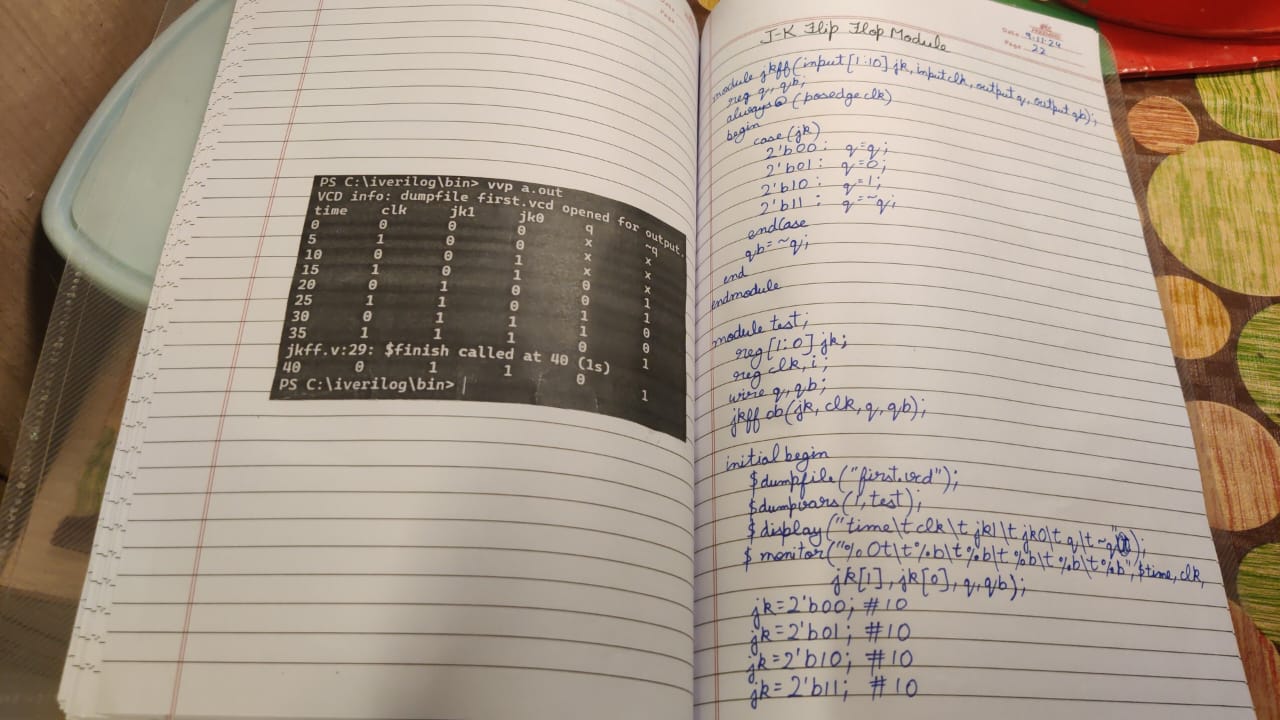 PS C:\iverilog\bin> vvp a.out
VCD info: dumpfile first.vcd opened for output.
time clk jk1 jk0 q ~q
0 0 0 0 x x
5 1 0 0 x x
10 0 0 1 x x
15 1 0 1 0 1
20 0 1 0 0 1
25 1 1 0 1 0
30 0 1 1 1 0
35 1 1 1 0 1
jkff.v:29: $finish called at 40 (1s)
40 0 1 1 0 1
PS C:\iverilog\bin>
J-K Flip Flop Module
Date 9.11.24
Page 22
module jkff(input[1:10] jk, input clk, output q, output qb);
reg q, qb;
always@ (posedge clk)
begin
case(jk)
2'b00: q=q;
2'b01: q=0;
2'b10: q=1;
2'b11: q=~q;
endcase
qb=~q;
end
endmodule
module test;
reg[1:0] jk;
reg clk, i;
wire q, qb;
jkff ob(jk, clk, q, qb);
initial begin
$dumpfile("first.vcd");
$dumpvars(1,test);
$display("time\t clk\t jk1\t jk0\t q\t ~q");
$monitor("%0t\t%b\t%b\t%b\t%b\t%b",$time,clk,
jk[1], jk[0], q, qb);
jk=2'b00; #10
jk=2'b01; #10
jk=2'b10; #10
jk=2'b11; #10